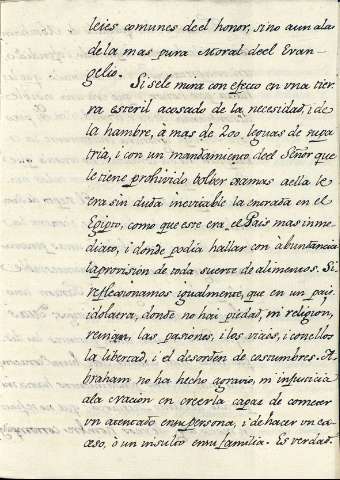 leies comunes deel honor, sino aun ala
de la mas pura Moral deel Evan-
gelio.
Si sele mira con efecto en vna tier
rra esteril acosado de la necesidad, i de
la hambre, à mas de 200, leguas de supa
tria, i con un mandamiento deel Señor que
le tiene prohivido bolver jamas aella le
era sin duda inevitable la entrada en el
Egipto, como que este era el Pais mas inme
diato, i donde podia hallar con abundancia
la provision de toda suerte de alimentos. Si
reflexionamos igualmente, que en un pais
idolatra, donde no hai piedad, ni religion,
reinan, las pasiones, i los vicios, i con ellos
la libertad, i el desorden de costumbres. A-
braham no ha hecho agravio, ni injusticia
ala Nacion en creerla capaz de cometer
vn atentado ensu persona, i de hacer vn ex
ceso, ò un insulto ensu familia. Es verdad